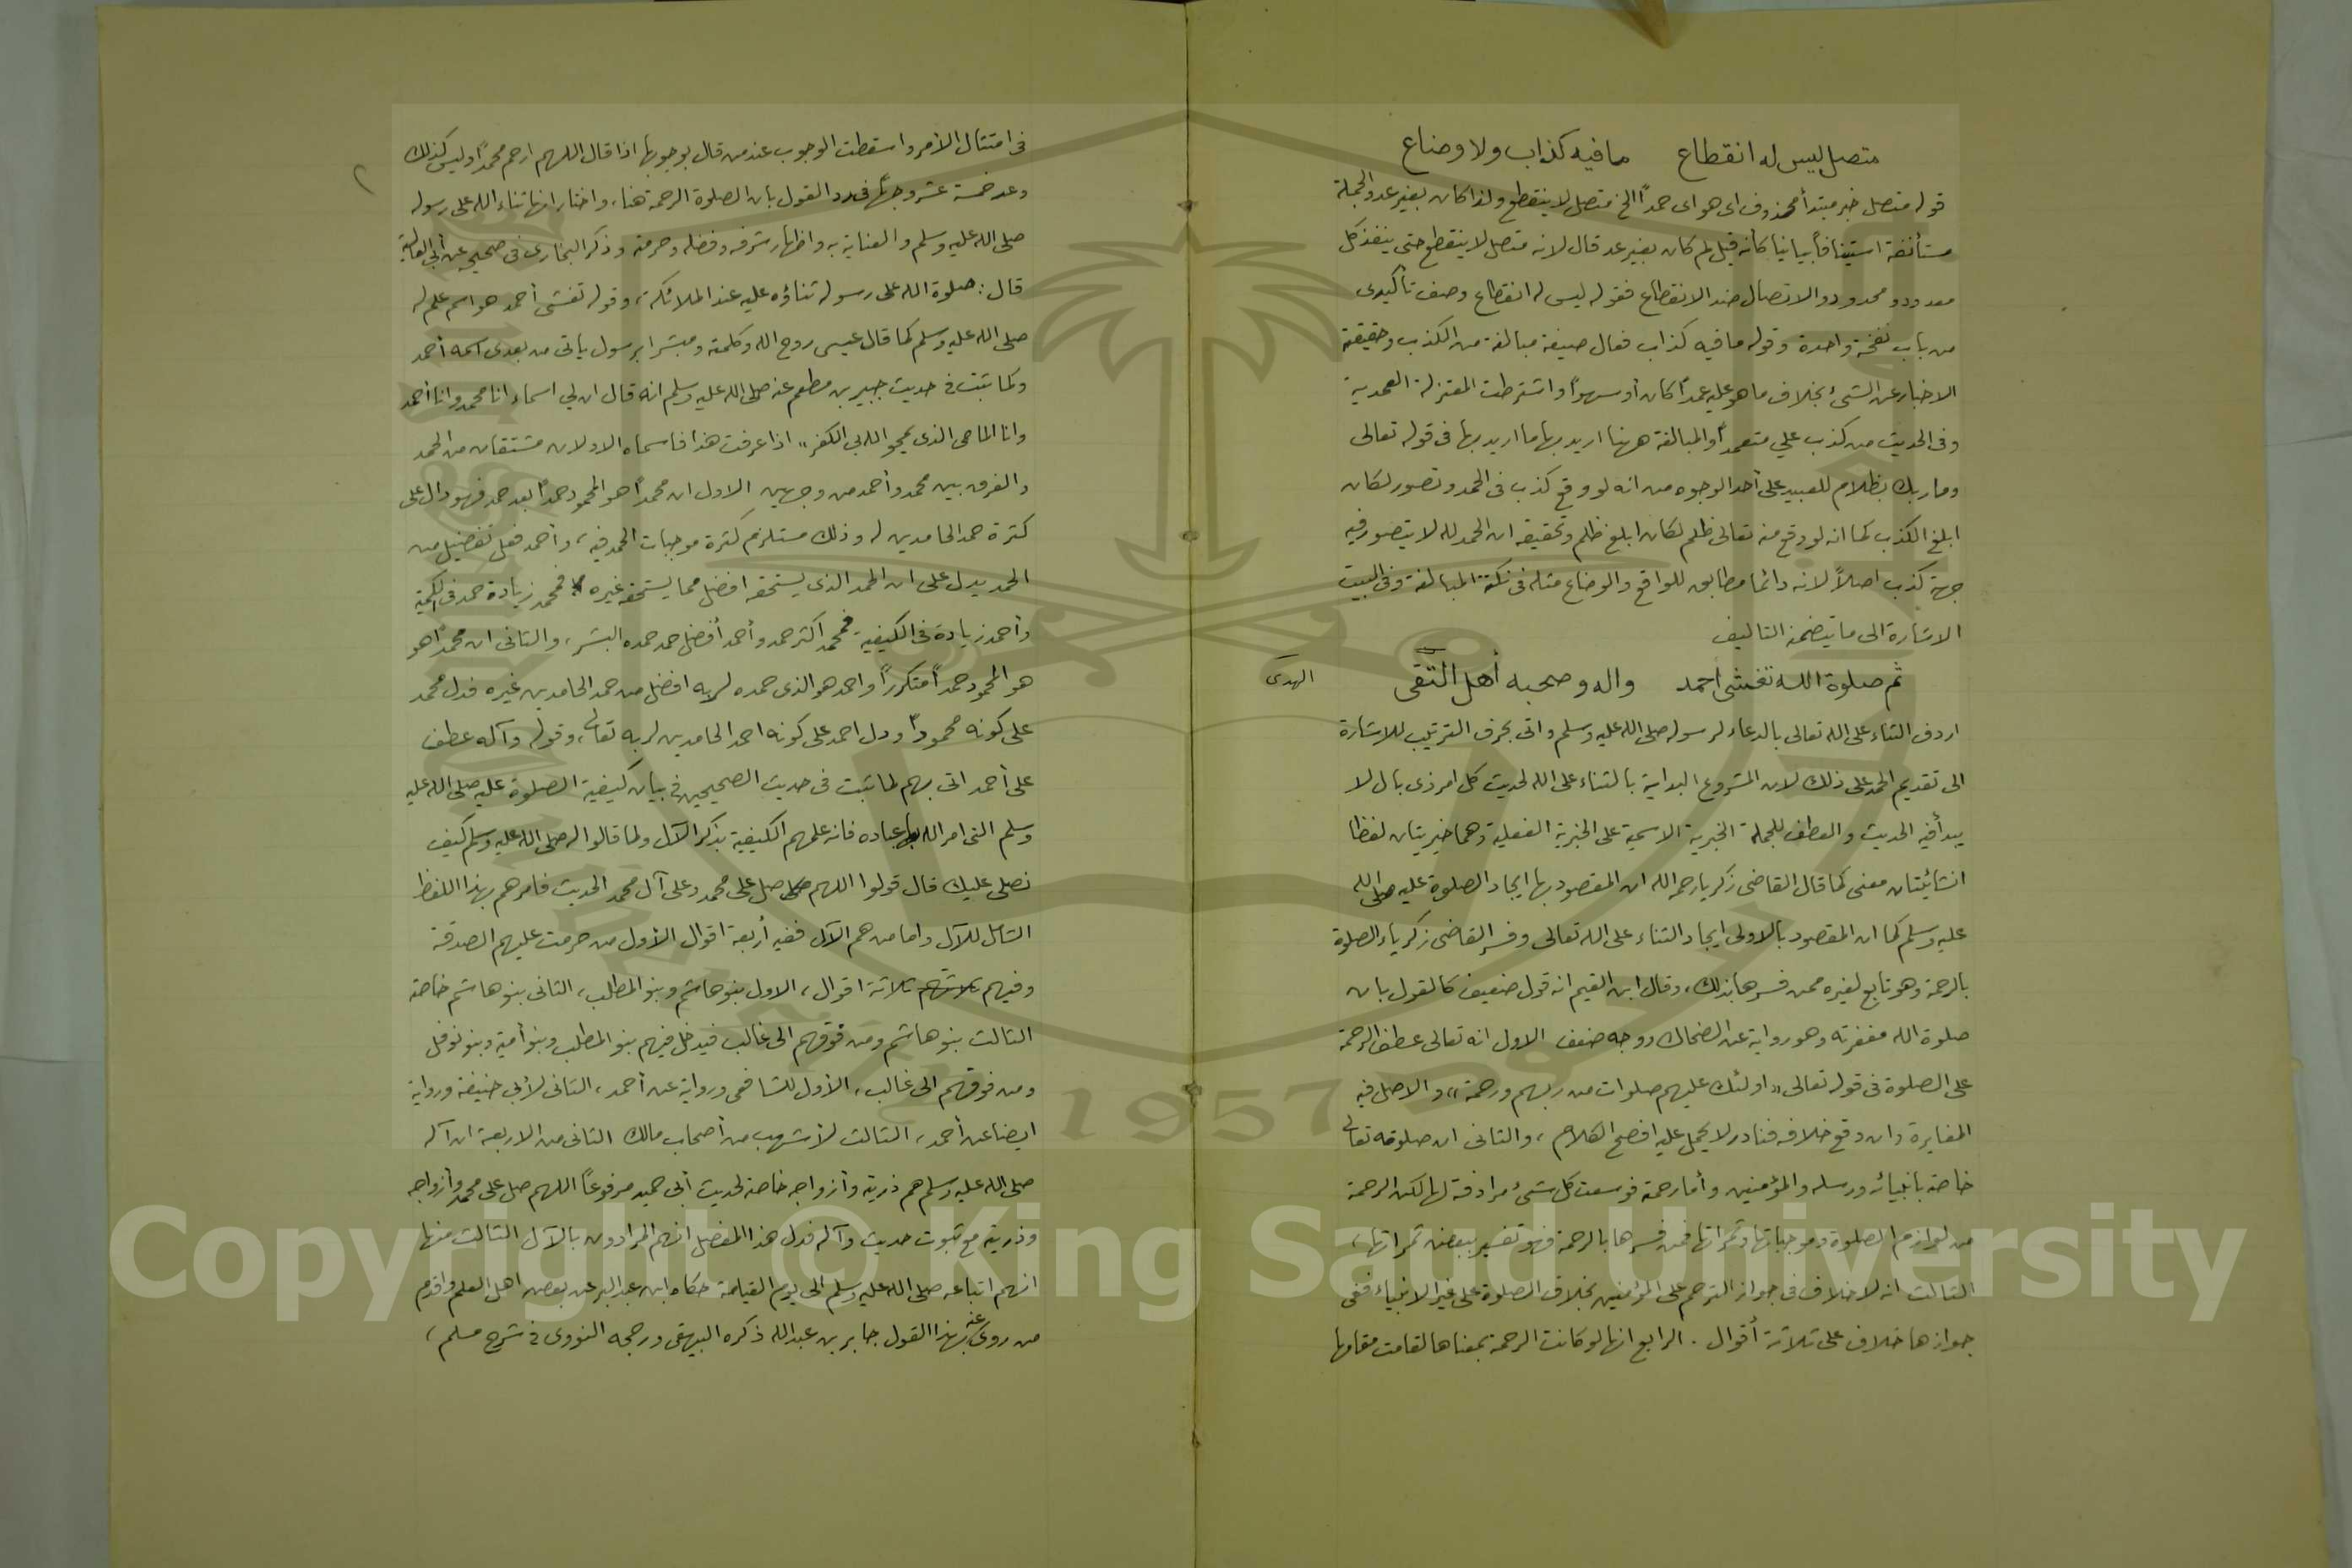 متصل ليس له انقطاع ما فيه كذاب ولا وضاع
قوله متصل خبر مبتدأ محذوف اى هو اى حمداً الخ متصل لا ينقطع ولذا كان بغير عد والجملة
مستأنفة استينافاً بيانيا كأنه قيل لم كان بغير عد قال لانه متصل لا ينقطع حتى ينفذ كل
معدود ومحدود والاتصال ضد الانقطاع فقوله ليس له انقطاع وصف تأكيدى
من باب نفخة واحدة وقوله ما فيه كذاب فعال صيغة مبالغة من الكذب وحقيقته
الاخبار عن الشئ بخلاف ما هو عليه عمداً كان أو سهواً واشترطت المعتزلة العمدية
وفى الحديث من كذب علي متعمداً والمبالغة ههنا اريد بها ما اريد بها فى قوله تعالى
وما ربك بظلام للعبيد على أحد الوجوه من انه لو وقع كذب فى الحمد وتصور لكان
ابلغ الكذب كما انه لو وقع منه تعالى ظلم لكان ابلغ ظلم وتحقيقه ان الحمد لله لا يتصور فيه
جهة كذب اصلاً لانه دائما مطابق للواقع والوضاع مثله فى نكتة المبالغة وفى البيت
الاشارة الى ما يتضمنه التاليف
ثم صلوة الله تغشى أحمد واله وصحبه أهل التقى الهدى
اردف الثناء على الله تعالى بالدعاء لرسوله صلى الله عليه وسلم واتى بحرف الترتيب للاشارة
الى تقديم الحمد على ذلك لان المشروع البداية بالثناء على الله لحديث كل امر ذى بال لا
يبدأ فيه الحديث والعطف للجملة الخبرية الاسمية على الخبرية الفعلية وهما خبريتان لفظا
انشائيتان معنى كما قال القاضى زكريا رحمه الله ان المقصود بها ايجاد الصلوة عليه صلى الله
عليه وسلم كما ان المقصود بالاولى ايجاد الثناء على الله تعالى وفسر القاضى زكرياء الصلوة
بالرحمة وهو تابع لغيره ممن فسرها بذلك، وقال ابن القيم انه قول ضعيف كالقول بان
صلوة الله مغفرته وهو رواية عن الضحاك ووجه ضعف الاول انه تعالى عطف الرحمة
على الصلوة فى قوله تعالى «اولئك عليهم صلوات من ربهم ورحمة» والاصل فيه
المغايرة وان وقع خلافه فنادر لا يحمل عليه افصح الكلام، والثانى ان صلوته تعالى
خاصة بانبيائه ورسله والمؤمنين وأما رحمته فوسعت كل شئ مرادفة لها لكن الرحمة
من لوازم الصلوة وموجباتها وثمراتها فمن فسرها بالرحمة فهو تفسير ببعض ثمراتها،
الثالث انه لا خلاف فى جواز الترحم على المؤمنين بخلاف الصلوة على غير الانبياء ففى
جوازها خلاف على ثلاثة أقوال. الرابع انها لو كانت الرحمة بمعناها لقامت مقامها
٢
فى امتثال الأمر واسقطت الوجوب عند من قال بوجوبها اذا قال اللهم ارحم محمداً وليس كذلك
وعد خمسة عشر وجهاً فى رد القول بان الصلوة الرحمة هنا، واختار انها ثناء الله على رسوله
صلى الله عليه وسلم والعناية به واظهار شرفه وفضله وحرمته وذكر البخارى فى صحيحه عن أبى العالية
قال: صلوة الله على رسوله ثناؤه عليه عند الملائكة، وقوله تغشى أحمد هو اسم علم له
صلى الله عليه وسلم كما قال عيسى روح الله وكلمته ومبشرا برسول ياتى من بعدى اسمه أحمد
وكما ثبت فى حديث جبير بن مطعم عنه صلى الله عليه وسلم انه قال ان لي اسماء انا محمد وانا أحمد
وانا الماحى الذى يمحو الله بى الكفر» اذا عرفت هذا فاسماه الاولان مشتقان من الحمد
والفرق بين محمد وأحمد من وجهين الاول ان محمداً هو المحمود حمداً بعد حمد فهو دال على
كثرة حمد الحامدين له وذلك مستلزم كثرة موجبات الحمد فيه، وأحمد فعل تفضيل من
الحمد يدل على ان الحمد الذى يستحقه افضل مما يستحقه غيره فمحمد زيادة حمد فى الكمية
وأحمد زيادة فى الكيفية فمحمد اكثر حمد وأحمد أفضل حمد حمده البشر، والثانى ان محمداً هو
هو المحمود حمداً متكرراً واحمد هو الذى حمده لربه افضل من حمد الحامدين غيره فدل محمد
على كونه محموداً ودل احمد على كونه احمد الحامدين لربه تعالى، وقوله وآله عطف
على أحمد اتى بهم لما ثبت فى حديث الصحيحين فى بيان كيفية الصلوة عليه صلى الله عليه
وسلم التى امر الله بها عباده فانه علمهم الكيفية بذكر الآل ولما قالوا له صلى الله عليه وسلم كيف
نصلى عليك قال قولوا اللهم صل على محمد وعلى آل محمد الحديث فامرهم بهذا اللفظ
الشامل للآل واما من هم الآل ففيه أربعة اقوال الأول من حرمت عليهم الصدقة
وفيهم ثلاثة اقوال، الاول بنو هاشم وبنو المطلب، الثانى بنو هاشم خاصة
الثالث بنو هاشم ومن فوقهم الى غالب فيدخل فيهم بنو المطلب وبنو أمية وبنو نوفل
ومن فوقهم الى غالب، الأول للشافعى ورواية عن أحمد، الثانى لأبى حنيفة ورواية
ايضا عن أحمد، الثالث لأشهب من أصحاب مالك الثانى من الاربعة ان آله
صلى الله عليه وسلم هم ذريته وأزواجه خاصة لحديث أبى حميد مرفوعاً اللهم صل على محمد وأزواجه
وذريته مع ثبوت حديث وآله فدل هذا المفصل انهم المرادون بالآل الثالث منها
انهم اتباعه صلى الله عليه وسلم الى يوم القيامة حكاه ابن عبد البر عن بعض اهل العلم واقدم
من روى عنه بهذا القول جابر بن عبد الله ذكره البيهقى ورجحه النووى فى شرح مسلم،
1957
Copyright © King Saud University